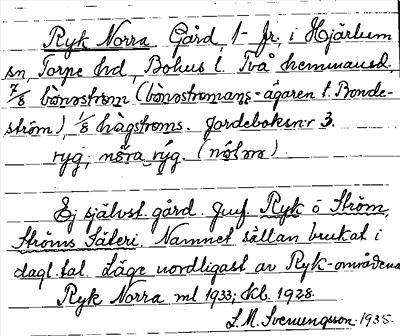 Ryk Norra. Gård, 1- fr, i Hjärtum
sn, Torpe hd, Bohus l. Två hemmansd.
7/8 bönostrom (bönostromans-ägaren t. Bonde-
ström), 1/8 hägstroms. Jordeboksnr 3.
ryg, nöra ryg. (nölöro)
Ej självst. gård. Jmf. Ryk ö Ström,
Ströms Säteri. Namnet sällan brukat i
dagl. tal. Läge nordligast av Ryk-områdena
Ryk Norra ml 1933; Ekk. 1928.
L. M. Svenungsson. 1935.